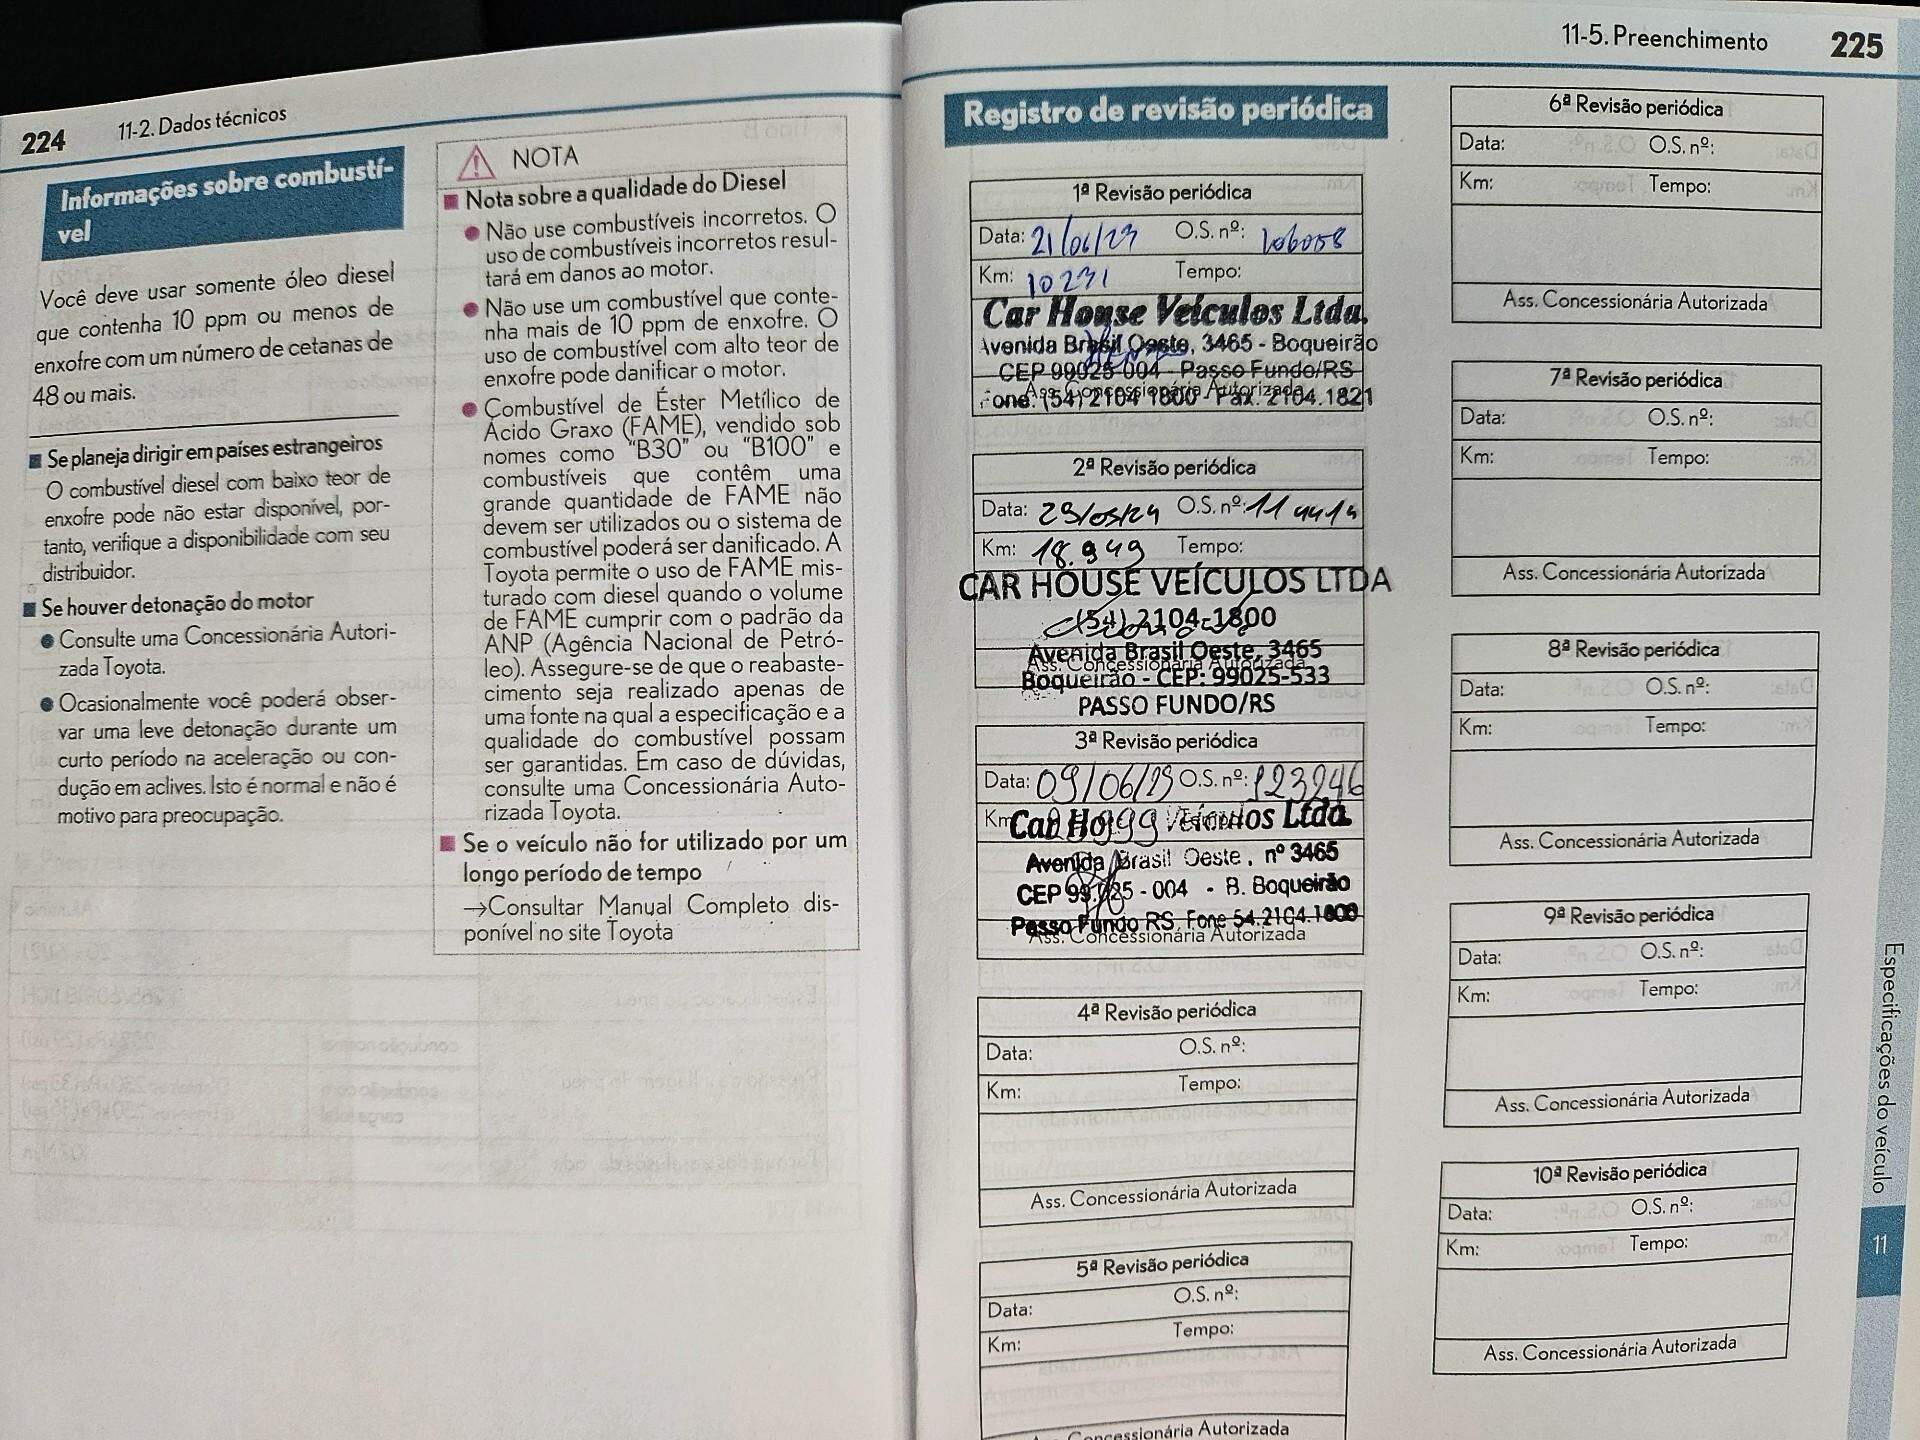 224
11-2. Dados técnicos
Informações sobre combustí-
vel
Você deve usar somente óleo diesel
que contenha 10 ppm ou menos de
enxofre com um número de cetanas de
48 ou mais.
Se planeja dirigir em países estrangeiros
O combustível diesel com baixo teor de
enxofre pode não estar disponível, por-
tanto, verifique a disponibilidade com seu
distribuidor.
Se houver detonação do motor
Consulte uma Concessionária Autori-
zada Toyota.
Ocasionalmente você poderá obser-
var uma leve detonação durante um
curto período na aceleração ou con-
dução em aclives. Isto é normal e não é
motivo para preocupação.
NOTA
Nota sobre a qualidade do Diesel
Não use combustíveis incorretos. O
uso de combustíveis incorretos resul-
tará em danos ao motor.
Não use um combustível que conte-
nha mais de 10 ppm de enxofre. O
uso de combustível com alto teor de
enxofre pode danificar o motor.
Combustível de Éster Metílico de
Ácido Graxo (FAME), vendido sob
nomes como “B30” ou “B100” e
combustíveis que contêm uma
grande quantidade de FAME não
devem ser utilizados ou o sistema de
combustível poderá ser danificado. A
Toyota permite o uso de FAME mis-
turado com diesel quando o volume
de FAME cumprir com o padrão da
ANP (Agência Nacional de Petró-
leo). Assegure-se de que o reabaste-
cimento seja realizado apenas de
uma fonte na qual a especificação e a
qualidade do combustível possam
ser garantidas. Em caso de dúvidas,
consulte uma Concessionária Auto-
rizada Toyota.
Se o veículo não for utilizado por um
longo período de tempo
→Consultar Manual Completo dis-
ponível no site Toyota
11-5. Preenchimento
225
Registro de revisão periódica
1ª Revisão periódica
Data: 21/06/23 O.S. nº: 106058
Km: 10231 Tempo:
Car House Veículos Ltda.
Avenida Brasil Oeste, 3465 - Boqueirão
CEP 99025-004 - Passo Fundo/RS
Ass. Concessionária Autorizada
Fone: (54) 2104 1800 - Fax. 2104.1821
2ª Revisão periódica
Data: 29/05/24 O.S. nº:
Km: 18.949 Tempo:
CAR HOUSE VEÍCULOS LTDA
(54) 2104-1800
Avenida Brasil Oeste, 3465
Ass. Concessionária Autorizada
Boqueirão - CEP: 99025-533
PASSO FUNDO/RS
3ª Revisão periódica
Data: 09/06/25 O.S. nº: 123246
Km
Car House Veículos Ltda.
Avenida Brasil Oeste, nº 3465
CEP 99.025 - 004 - B. Boqueirão
Passo Fundo RS, Fone 54.2104.1800
Ass. Concessionária Autorizada
4ª Revisão periódica
Data: O.S. nº:
Km: Tempo:
Ass. Concessionária Autorizada
5ª Revisão periódica
Data: O.S. nº:
Km: Tempo:
Ass. Concessionária Autorizada
6ª Revisão periódica
Data: O.S. nº:
Km: Tempo:
Ass. Concessionária Autorizada
7ª Revisão periódica
Data: O.S. nº:
Km: Tempo:
Ass. Concessionária Autorizada
8ª Revisão periódica
Data: O.S. nº:
Km: Tempo:
Ass. Concessionária Autorizada
9ª Revisão periódica
Data: O.S. nº:
Km: Tempo:
Ass. Concessionária Autorizada
10ª Revisão periódica
Data: O.S. nº:
Km: Tempo:
Ass. Concessionária Autorizada
Especificações do veículo
11